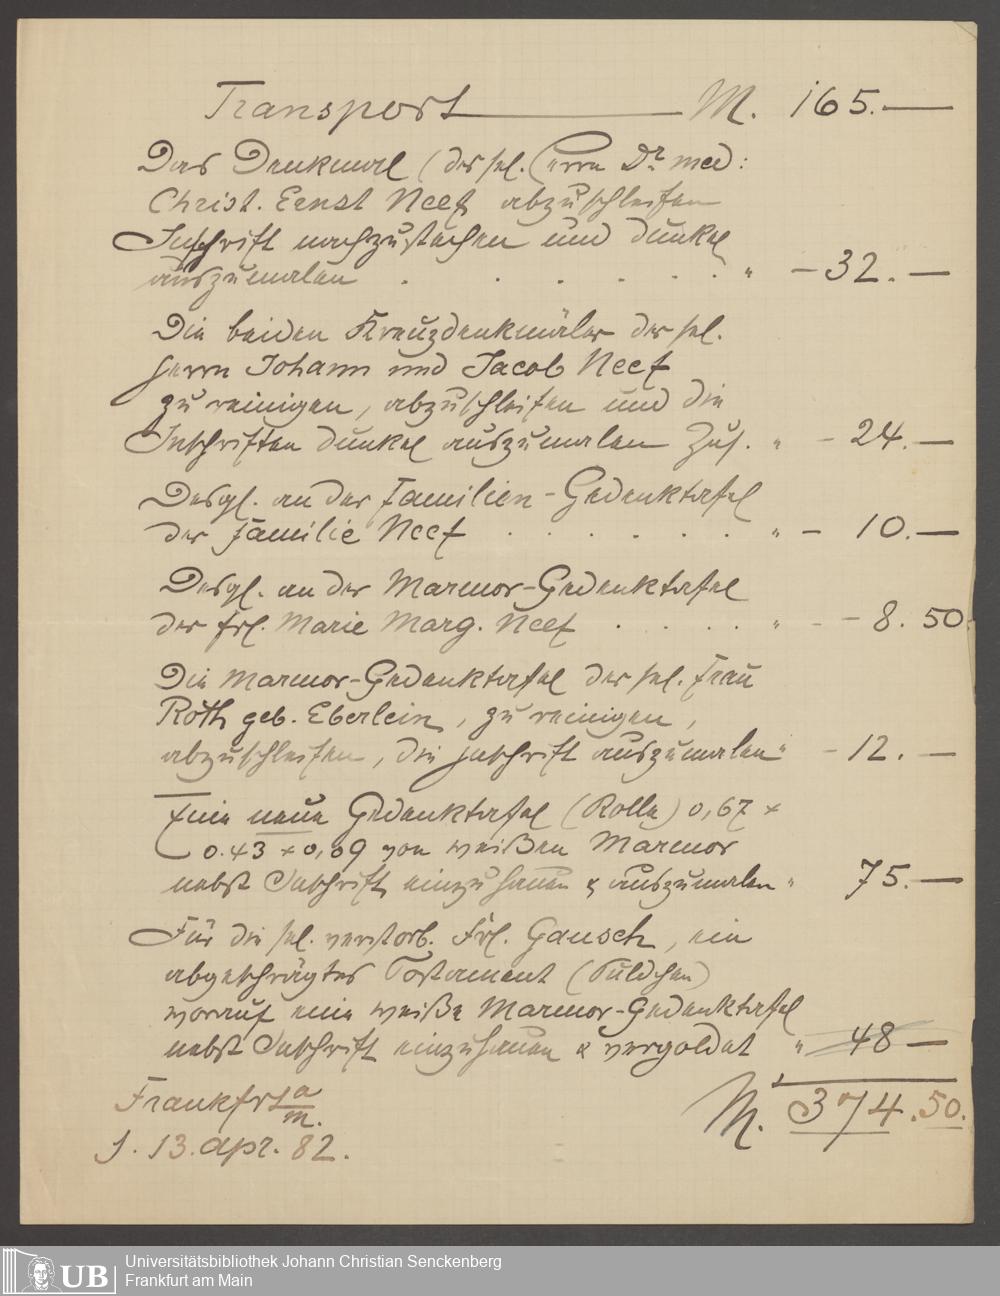 Transport — M. 165.—
Das Denkmal (des sel. Herrn Dr. med:
Christ. Ernst Neef abzuschleifen
Inschrift nachzustechen und dunkel
auszumalen . . . . . . . " – 32.—
Die beiden Kreuzdenkmäler der sel.
Herrn Johann und Jacob Neef
zu reinigen, abzuschleifen und die
Inschriften dunkel auszumalen zus. " – 24.—
Desgl. an der Familien-Gedenktafel
der Familie Neef . . . . . . " – 10.—
Desgl. an der Marmor-Gedenktafel
der Frl. Marie Marg. Neef . . . . . " – – 8.50.
Die Marmor-Gedenktafel der sel. Frau
Roth geb. Eberlein, zu reinigen,
abzuschleifen, die Inschrift auszumalen " – 12.—
Eine neue Gedenktafel (Rolle) 0,67 ×
0.43 × 0,09 von weißen Marmor
nebst Inschrift einzuhauen & auszumalen " 75.—
Für die sel. verstorb. Frl. Gansch, ein
abgeschrägtes Postament (Püldchen)
worauf eine weiße Marmor-Gedenktafel
nebst Inschrift einzuhauen & vergoldet " 48—
M. 374.50.
Frankfrt a/m.
13. Apr. 82.
UB
Universitätsbibliothek Johann Christian Senckenberg
Frankfurt am Main